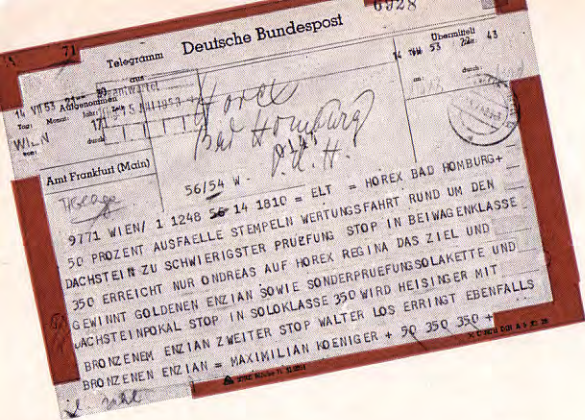 6928
A 71 Telegramm Deutsche Bundespost
aus
Übermittelt
14 VII 53 Aufgenommen
14 53 22 43
Tag: Monat: Jahr:
durch:
WIEN
Amt Frankfurt (Main)
Horex
Bad Homburg
v.d.H.
56/54 W
9771 WIEN/ 1 1248 56 14 1810 = ELT = HOREX BAD HOMBURG+
50 PROZENT AUSFAELLE STEMPELN WERTUNGSFAHRT RUND UM DEN
DACHSTEIN ZU SCHWIERIGSTER PRUEFUNG STOP IN BEIWAGENKLASSE
350 ERREICHT NUR ONDREAS AUF HOREX REGINA DAS ZIEL UND
GEWINNT GOLDENEN ENZIAN SOWIE SONDERPRUEFUNGSOLAKETTE UND
DACHSTEINPOKAL STOP IN SOLOKLASSE 350 WIRD HEISINGER MIT
BRONZENEM ENZIAN ZWEITER STOP WALTER LOS ERRINGT EBENFALLS
BRONZENEN ENZIAN = MAXIMILIAN HOENIGER + 50 350 350 +